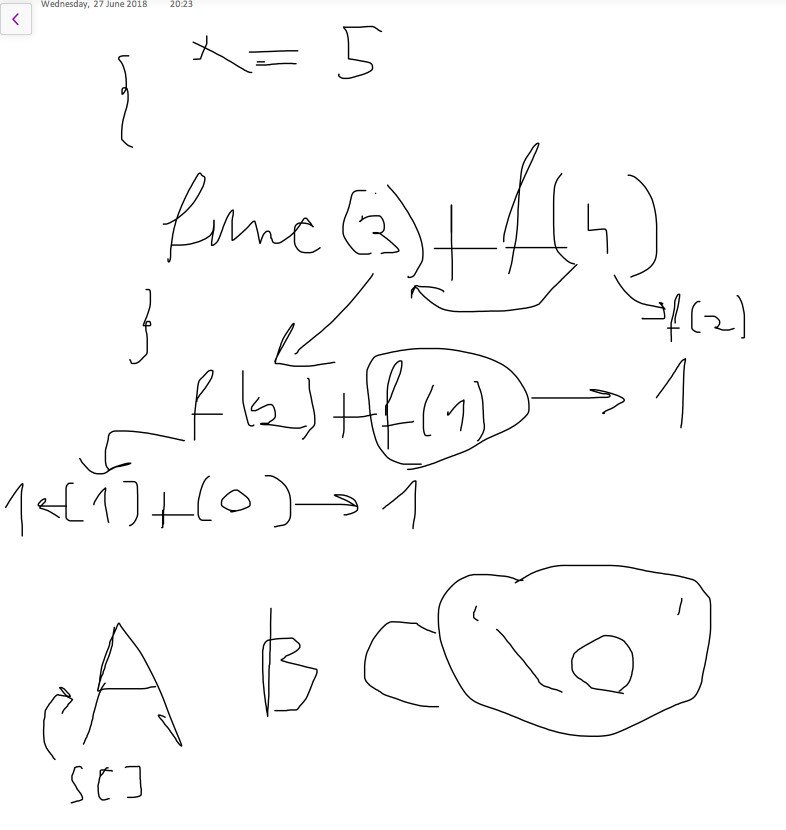 Wednesday, 27 June 2018 20:23
x = 5
{
func(3) + f(4)
f(2)
}
f(2) + f(1) → 1
1 ← (1) + (0) → 1
A B C '\0'
S[]